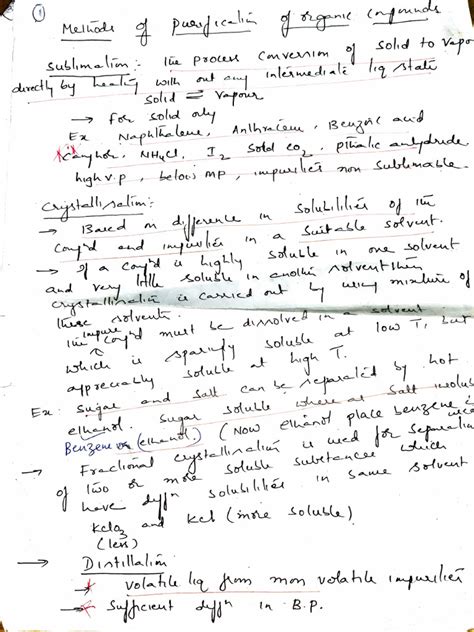 ①
Methods of purification of organic compounds
Sublimation: The process conversion of solid to vapour
directly by heating with out any intermediate liq state
solid ⇌ vapour
→ For solid only
Ex Naphthalene, Anthracene, Benzoic acid
camphor, NH4Cl, I2 solid CO2, pthalic anhydride
high v.p, below MP, impurities non sublimable.
Crystallisation:-
→ Based on difference in solubilities of the
comp'd and impurities in a suitable solvent.
→ If a comp'd is highly soluble in one solvent
and very little soluble in another solvent then
crystallisation is carried out by using mixture of
these solvents.
→ The impure comp'd must be dissolved in a solvent
which is sparingly soluble at low T, but
appreciably soluble at high T.
Ex: Sugar and salt can be separated by hot
ethanol. Sugar soluble where as salt insolub
Benzene ethanol. (Now ethanol place benzene is
→ Fractional crystallisation is used for separation
of two or more soluble substances which
have diffn solubilities in same solvent
KClO3 and KCl (more soluble)
(less)
→ Distillation
→ volatile liq from non volatile impurities
→ Sufficient diffn in B.P.